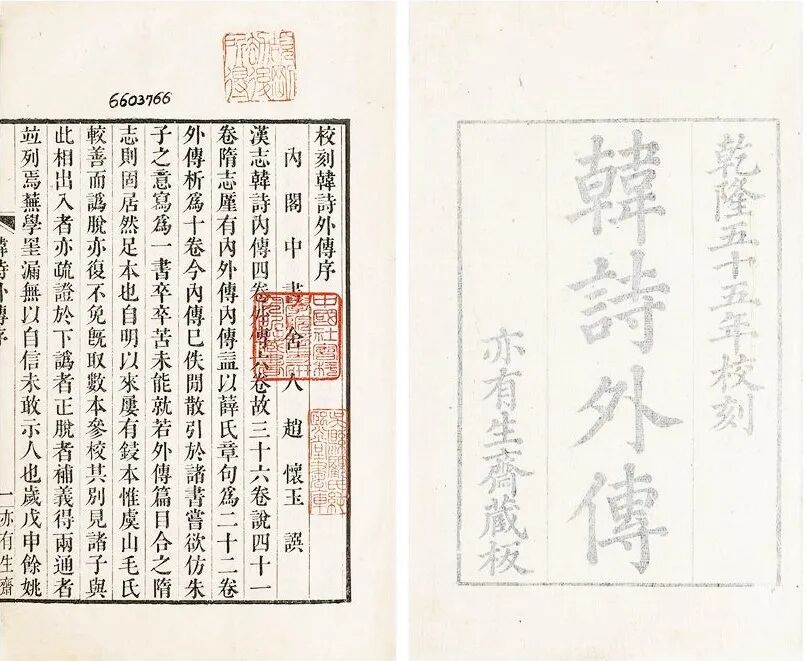 乾隆五十五年校刻
韓詩外傳
亦有生齋藏板
6603766
校刻韓詩外傳序
內閣中書舍人趙懷玉譔
漢志韓詩內傳四卷外傳六卷故三十六卷說四十一
卷隋志厪有內外傳內傳葢以薛氏章句爲二十二卷
外傳析爲十卷今內傳已佚閒散引於諸書嘗欲仿朱
子之意寫爲一書卒卒苦未能就若外傳篇目合之隋
志則固居然足本也自明以來屢有鋟本惟虞山毛氏
較善而譌脫亦復不免旣取數本參校其別見諸子與
此相出入者亦疏證於下譌者正脫者補義得兩通者
竝列焉蕪學罣漏無以自信未敢示人也歲戊申餘姚
韓詩外傳序 一 亦有生齋